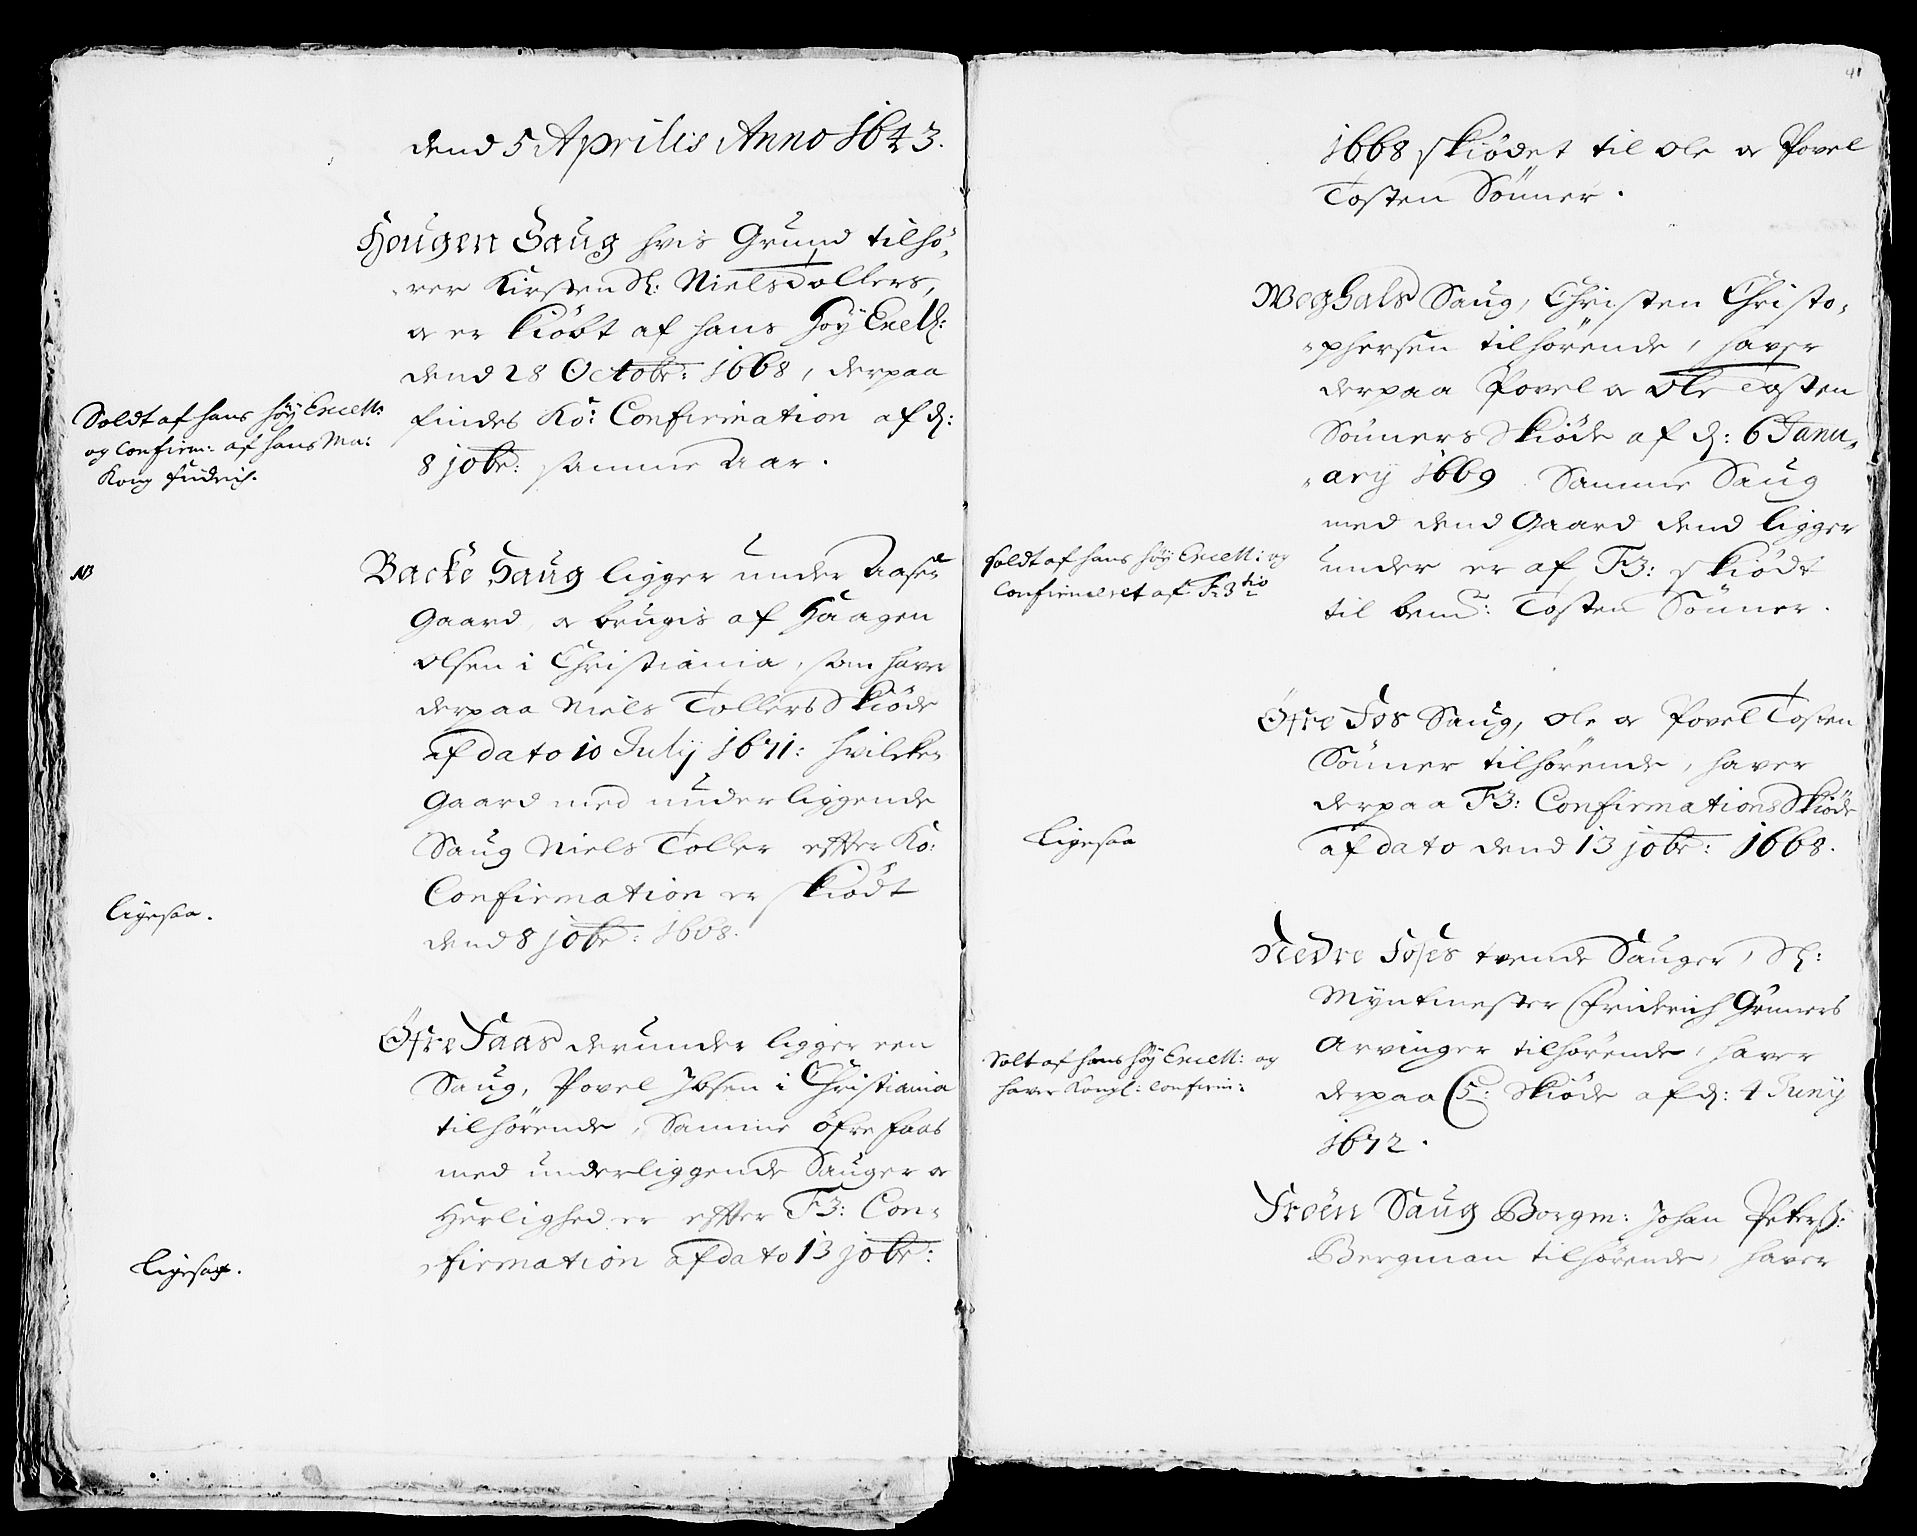 dend 5 Aprilis Anno 1643.
Hougen Saug hvis Grund tilhø„
„rer Kirsten Sl: Niels Tollers,
oc er kiøbt af hans Høy Excell:
dend 28 Octobr: 1668, derpaa
findes Ko: Confirmation af d:
8 jobr: samme Aar.
Soldt af hans høy Excell:
og Confirm: af hans Ma:
Kong fridrich.
NB
Backe Saug ligger under Aaser
Gaard, oc brugis af Haagen
Olsen i Christiania, som haver
derpaa Niels Tollers Skiøde
af dato 10 July 1671: hvilcken
Gaard med underliggende
Saug Niels Toller efter Ko:
Confirmation er skiødt
dend 8 jobr: 1668.
ligesaa.
Öfre Faas derunder ligger een
Saug, Povel Ibsen i Christiania
tilhørende, Samme öfre faas
med underliggende Sauger oc
Herlighed er efter F3: Con„
„firmation af dato 13 jobr:
ligesaa.
41
1668 skiødet til Ole oc Povel
Tosten Sönner.
Weghals Saug, Christen Christo„
„phersen tilhørende, haver
derpaa Povel oc Ole Tosten
Sönners Skiøde af d: 6 Janu„
„ary 1669. Samme Saug
med dend Gaard dend ligger
under er af F3: skiødt
til bemte: Tosten Sönner.
soldt af hans høy Excell: og
Confirmeret af F: 3tio
Öfre Fos Saug, Ole oc Povel Tosten
Sönner tilhørende, haver
derpaa F3: Confirmations Skiøde
af dato dend 13 jobr: 1668.
ligesaa
Nedre Foses tvende Sauger, Sl:
Myntmester Friderich Gruners
Arvinger tilhørende, haver
derpaa C5: Skiøde af d: 4 Juny
1672.
Solt af hans høy Excell: og
haver Kongl: confirm:
Froën Saug Borgm: Johan Peterß:
Bergman tilhørende, haver